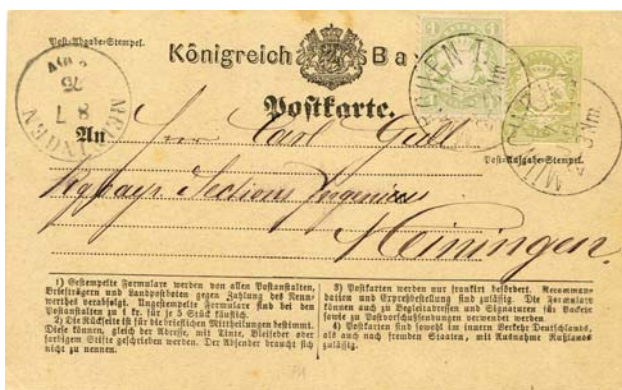 Post-Abgabe-Stempel.
Königreich Ba
Postkarte.
An
Herr Carl
Post-Aufgabe-Stempel.
Kgl bayr Sections Ingenieur
Meiningen.
MEININGEN
8 7
MÜNCHEN
1) Gestempelte Formulare werden von allen Postanstalten,
Briefträgern und Landpostboten gegen Zahlung des Nenn-
werthes verabfolgt. Ungestempelte Formulare sind bei den
Postanstalten zu 1 kr. für je 5 Stück käuflich.
2) Die Rückseite ist für die brieflichen Mittheilungen bestimmt.
Diese können, gleich der Adresse, mit Tinte, Bleifeder oder
farbigem Stifte geschrieben werden. Der Absender braucht sich
nicht zu nennen.
3) Postkarten werden nur frankirt befördert. Recomman-
dation und Expreßbestellung sind zulässig. Die Formulare
können auch zu Begleitadressen und Signaturen für Packete
sowie zu Postvorschußsendungen verwendet werden.
4) Postkarten sind sowohl im innern Verkehr Deutschlands,
als auch nach fremden Staaten, mit Ausnahme Rußlands
zulässig.